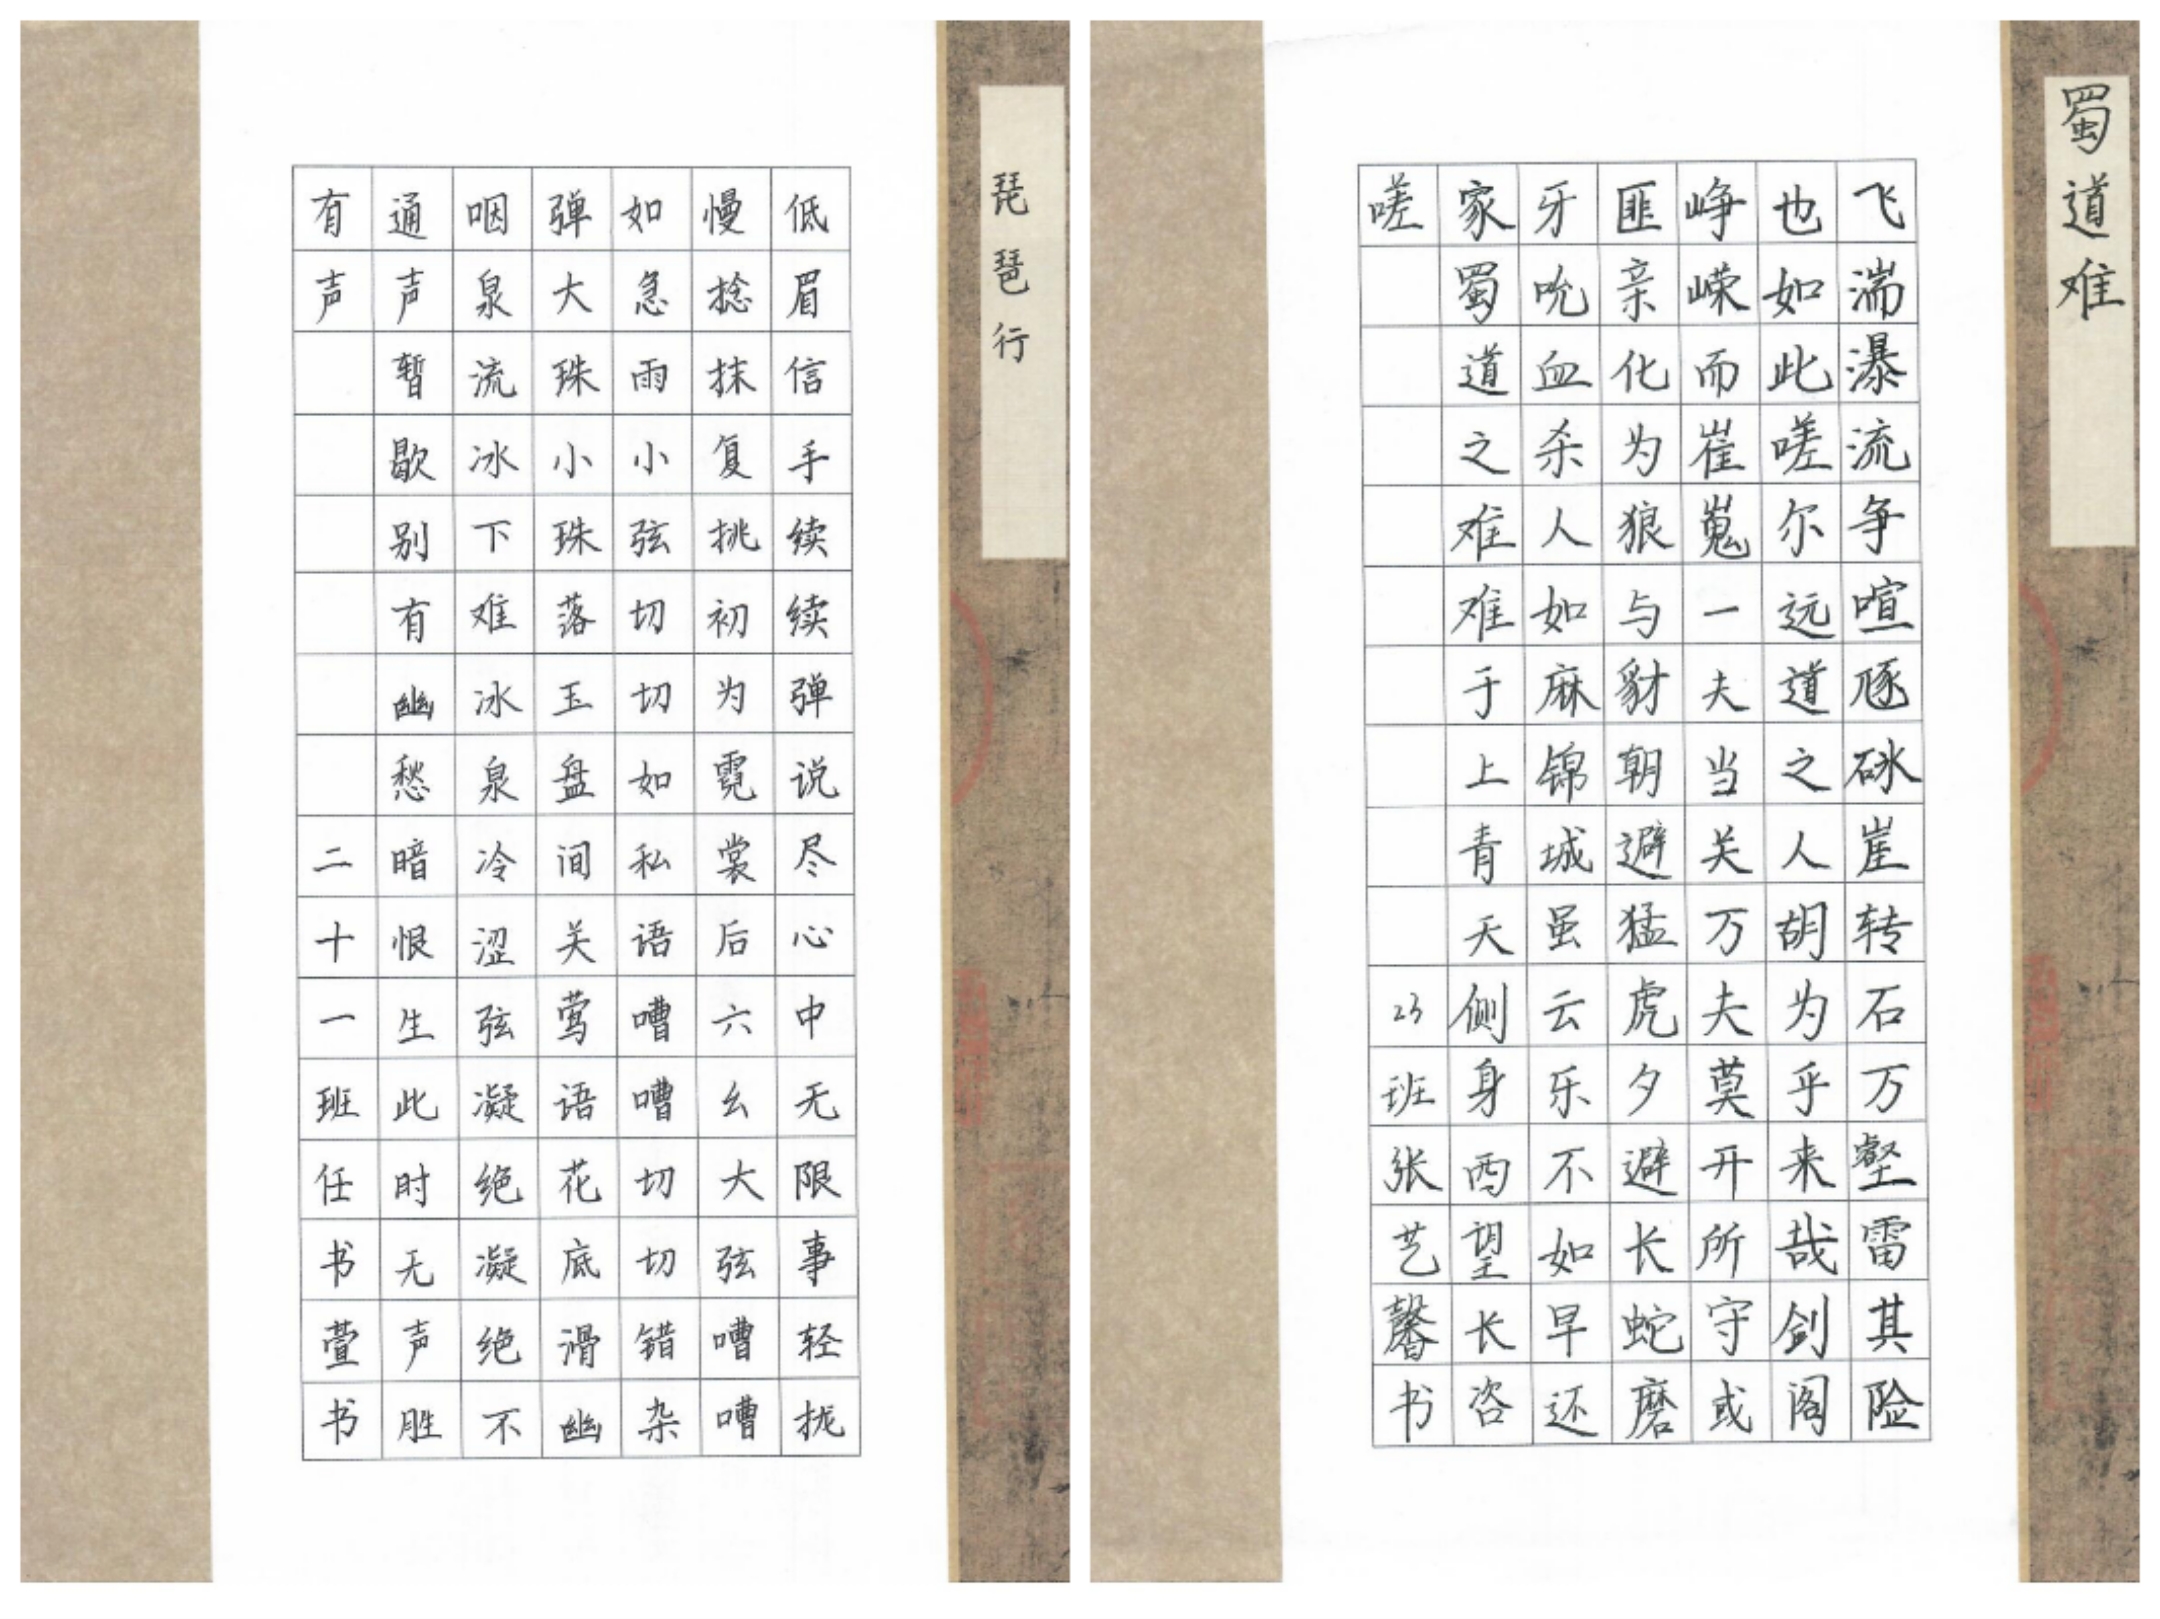 琵琶行
低眉信手续续弹说尽心中无限事轻拢
慢捻抹复挑初为霓裳后六幺大弦嘈嘈
如急雨小弦切切如私语嘈嘈切切错杂
弹大珠小珠落玉盘间关莺语花底滑幽
咽泉流冰下难冰泉冷涩弦凝绝凝绝不
通声暂歇别有幽愁暗恨生此时无声胜
有声 二十一班任书萱书
蜀道难
飞湍瀑流争喧豗砯崖转石万壑雷其险
也如此嗟尔远道之人胡为乎来哉剑阁
峥嵘而崔嵬一夫当关万夫莫开所守或
匪亲化为狼与豺朝避猛虎夕避长蛇磨
牙吮血杀人如麻锦城虽云乐不如早还
家蜀道之难难于上青天侧身西望长咨
嗟 23班张艺馨书